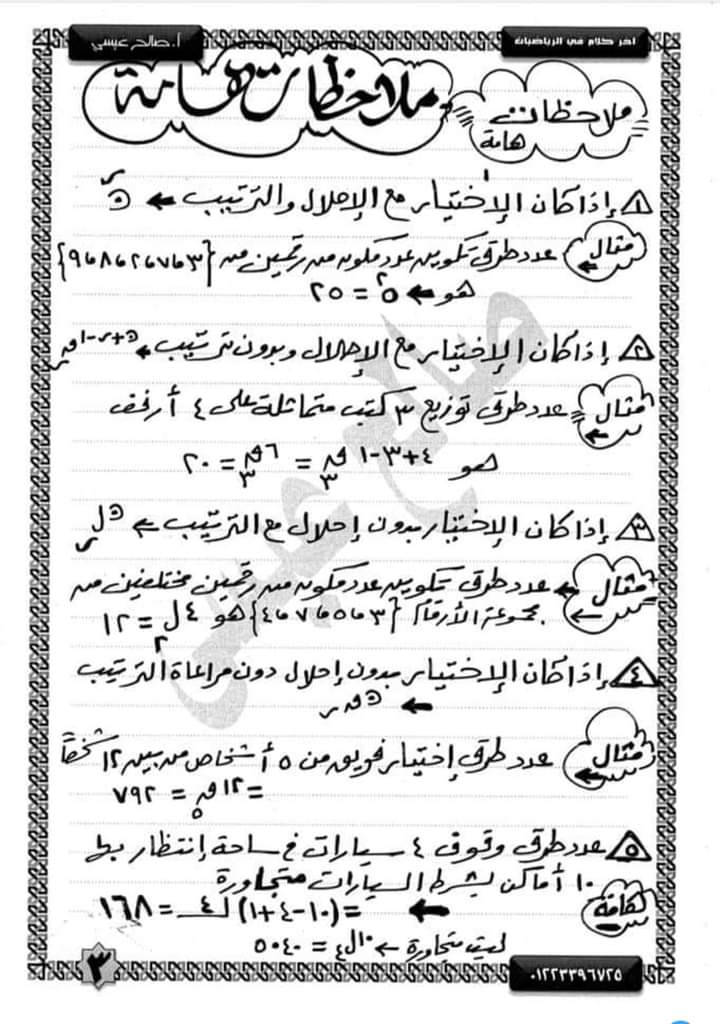 أخر كلام في الرياضيات
أ. صالح عيسى
ملاحظات هامة
ملاحظات هامة
١ إذا كان الإختيار مع الإحلال والترتيب ← ن^ر
مثال عدد طرق تكوين عدد مكون من رقمين من {٣، ٧، ٢، ٨، ٩}
هو ← ٥^٢ = ٢٥
٢ إذا كان الإختيار مع الإحلال وبدون ترتيب ← ن+ر-١ق ر
مثال عدد طرق توزيع ٣ كتب متماثلة على ٤ أرفف
هو ٤+٣-١ق٣ = ٦ق٣ = ٢٠
٣ إذا كان الإختيار بدون إحلال مع الترتيب ← ن ل ر
مثال ← عدد طرق تكوين عدد مكون من رقمين مختلفين من
مجموعة الأرقام {٣، ٥، ٧، ٤} هو ٤ل٢ = ١٢
٤ إذا كان الإختيار بدون إحلال دون مراعاة الترتيب
← ن ق ر
مثال عدد طرق إختيار فريق من ٥ أشخاص من بين ١٢ شخصًا
= ١٢ق٥ = ٧٩٢
٥ عدد طرق وقوف ٤ سيارات في ساحة إنتظار بها
١٠ أماكن بشرط السيارات متجاورة
هامة ← = (١٠-٤+١) ⌊٤ = ١٦٨
ليست متجاورة ← ١٠ل٤ = ٥٠٤٠
٣
٠١٢٢٣٣٩٦٧٢٥
صالح عيسى